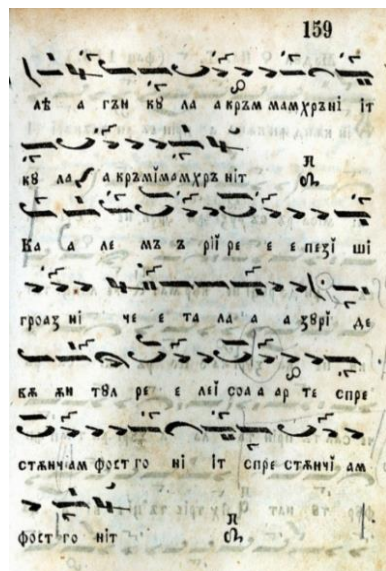 159
лѣ а гѫн кꙋ ла а крѫм мам хрѫні іт
кꙋ ла а крѫмїмам хрѫ ніт
Ка а ле мъ ъ рїй ре е е пезї ші
гроаз ні че е та ла а а ꙋрі де
вѫ жи тꙋл ре е леї соа а ар те спре
стѫнч ам фост го ні іт спре стѫнчї ам
фост го ніт